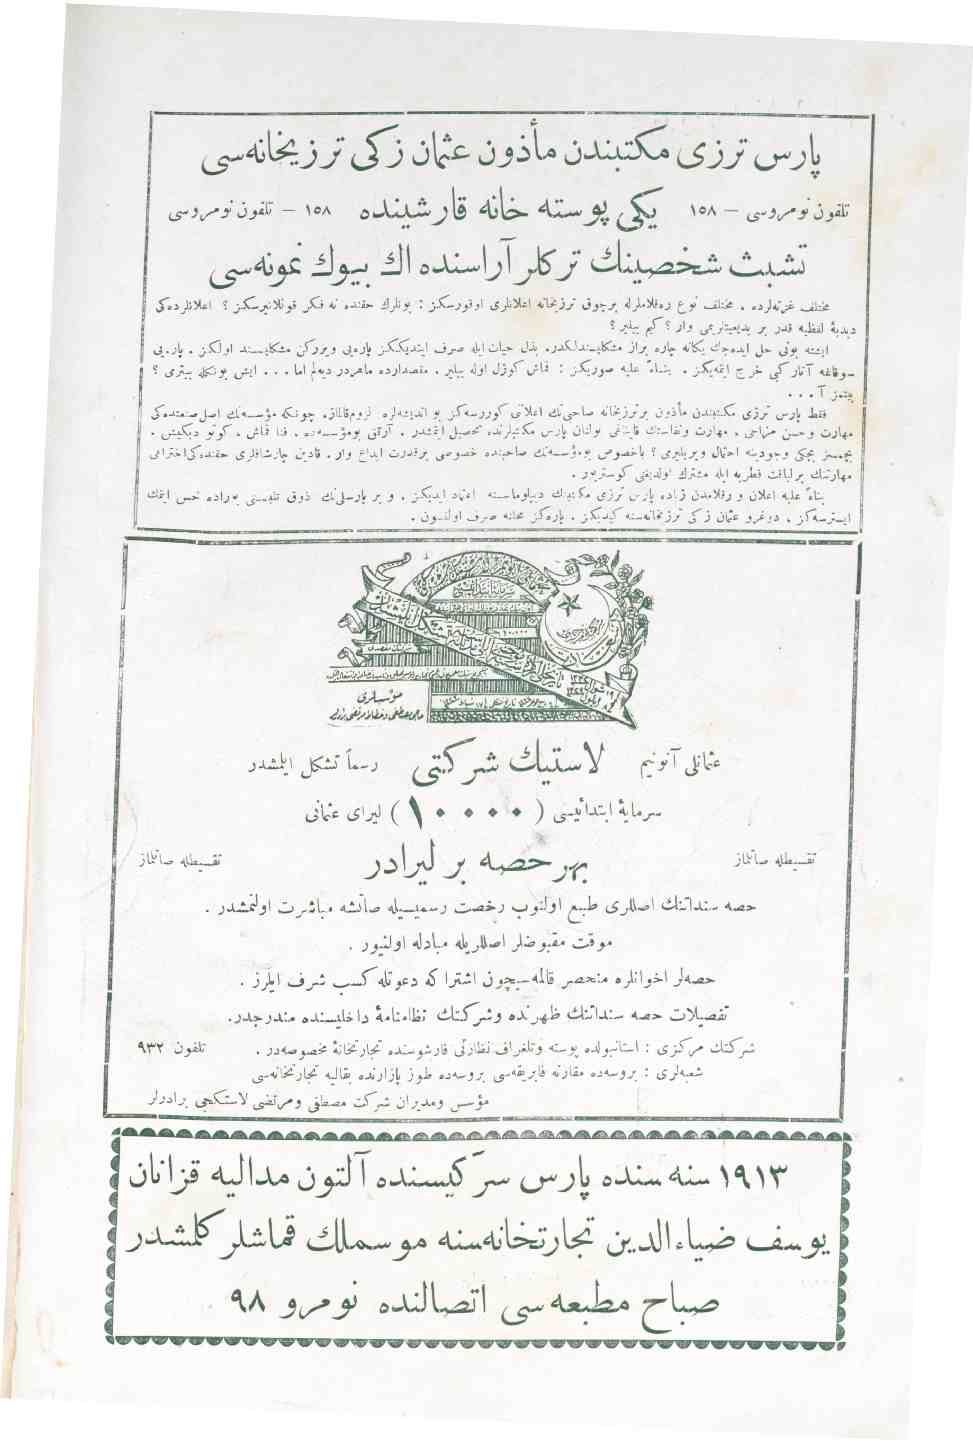 پارس ترزی مكتبندن مأذون عثمان زكی ترزیخانه‌سی
تلفون نومروسی — ١٥٨ یكی پوسته خانه قارشیسنده ١٥٨ — تلفون نومروسی
تشبث شخصینك تركلر آراسنده اك بیوك نمونه‌سی
مختلف غزته‌لرده . مختلف نوع ره‌قلاملرله برچوق ترزیخانه اعلانلری اوقورسكز : بونلرك حقنده نه فكر قوللانیرسكز ؟ اعلانلرده‌كی
دبدبهٔ لفظیه قدر بر بدیعیتلریمی وار ؟ كیم بیلیر ؟
ایشته بونی حل ایده‌جك یكانه چاره براز مشكلپسندلكدر. بذل حیات ایله صرف ایتدیككز پاره‌یی ویرركن مشكلپسند اولكز . پاره‌یی
سوقاغه آتار كبی خرج ایتمه‌یكز . بناءً علیه صوریكز : قماش كوزل اوله بیلیر . مقصدارده ماهردر دیه‌لم اما ... ایش بونكله بیترمی ؟
بیتمز آ . . . .
فقط پارس ترزی مكتبندن مأذون بر ترزیخانه صاحبنك اعلاننی كوررسه‌كز بو اندیشه‌لره لزوم قالماز. چونكه مؤسسه‌نك اصل صنعتده‌كی
مهارت و حسن مزاجی . مهارت و نفاستك قایناغی بولنان پارس مكتبلرنده تحصیل ایتمشدر . آرتق بومؤسسه‌ده . فنا قماش . كوتو دیكیش .
بیچمسز بیچكی وجودینه احتمال ویریلیرمی ؟ باخصوص بومؤسسه‌نك صاحبنده خصوصی برقدرت ابداع وار. قادین چارشافلری حقنده‌كی اختراعی
مهارتنك برلیاقت فطریه ایله مشترك اولدیغنی كوستریور.
بناءً علیه اعلان و رقلامدن زیاده پارس ترزی مكتبنك دیپلوماسنه اعتماد ایدیكز . و بر پارسلی‌نك ذوق تلبسنی بوراده حس ایتمك
ایسترسه‌كز . دوغرو عثمان زكی ترزیخانه‌سنه كیدیكز . پاره‌كز محلنه صرف اولنسون .
مؤسسلری
عثمانلی آنونیم لاستیك شركتی رسماً تشكل ایلمشدر
سرمایهٔ ابتدائیسی ( ١٠٠٠٠ ) لیرای عثمانی
تقسیطله صاتیلماز بهر حصه بر لیرادر تقسیطله صاتیلماز
حصه سنداتنك اصللری طبع اولنوب رخصت رسمیسیله صاتشه مباشرت اولنمشدر .
موقت مقبوضلر اصللریله مبادله اولنیور .
حصه‌لر اخوانلره منحصر قالمه‌سیچون اشتراكه دعوتله كسب شرف ایلرز .
تفصیلات حصه سنداتنك ظهرنده وشركتك نظامنامهٔ داخلیسنده مندرجدر.
شركتك مركزی : استانبولده پوسته وتلغراف نظارتی قارشوسنده تجارتخانهٔ مخصوصه‌در . تلفون ٩٣٢
شعبه‌لری : بروسه‌ده مقارنه فابریقه‌سی بروسه‌ده طوز پازارنده بقالیه تجارتخانه‌سی
مؤسس ومدیران شركت مصطفی ومرتضی لاستكجی برادرلر
١٩١٣ سنه سنده پارس سرگیسنده آلتون مدالیه قزانان
یوسف ضیاءالدین تجارتخانه‌سنه موسملك قماشلر كلمشدر
صباح مطبعه‌سی اتصالنده نومرو ٩٨